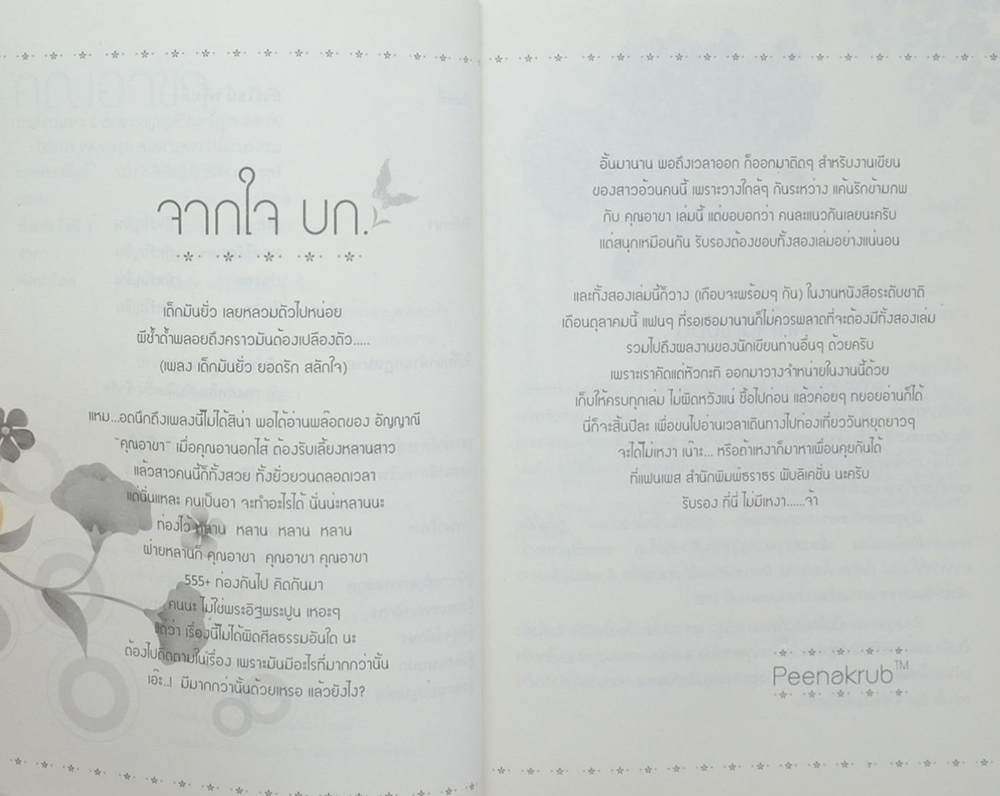 จากใจ บก.
เด็กมันยั่ว เลยหลวมตัวไปหน่อย
ผีซ้ำด้ำพลอยถึงคราวมันต้องเปลืองตัว.....
(เพลง เด็กมันยั่ว ยอดรัก สลักใจ)
แหม...อดนึกถึงเพลงนี้ไม่ได้สิน่า พอได้อ่านพล๊อตของ อัญญาณี
"คุณอาขา" เมื่อคุณอานอกไส้ ต้องรับเลี้ยงหลานสาว
แล้วสาวคนนี้ก็ทั้งสวย ทั้งยั่วยวนตลอดเวลา
แต่นั่นแหละ คนเป็นอา จะทำอะไรได้ นั่นน่ะหลานนะ
ท่องไว้ หลาน หลาน หลาน หลาน
ฝ่ายหลานก็ คุณอาขา คุณอาขา คุณอาขา
555+ ท่องกันไป คิดกันมา
คนนะ ไม่ใช่พระอิฐพระปูน เหอะๆ
แต่ว่า เรื่องนี้ไม่ได้ผิดศีลธรรมอันใด นะ
ต้องไปติดตามในเรื่อง เพราะมันมีอะไรที่มากกว่านั้น
เอ๊ะ..! มีมากกว่านั้นด้วยเหรอ แล้วยังไง?
อั้นมานาน พอถึงเวลาออก ก็ออกมาติดๆ สำหรับงานเขียน
ของสาวอ้วนคนนี้ เพราะวางใกล้ๆ กันระหว่าง แค้นรักข้ามภพ
กับ คุณอาขา เล่มนี้ แต่ขอบอกว่า คนละแนวกันเลยนะครับ
แต่สนุกเหมือนกัน รับรองต้องชอบทั้งสองเล่มอย่างแน่นอน
และทั้งสองเล่มนี้ก็วาง (เกือบจะพร้อมๆ กัน) ในงานหนังสือระดับชาติ
เดือนตุลาคมนี้ แฟนๆ ที่รอเธอมานานก็ไม่ควรพลาดที่จะต้องมีทั้งสองเล่ม
รวมไปถึงผลงานของนักเขียนท่านอื่นๆ ด้วยครับ
เพราะเราคัดแต่หัวกะทิ ออกมาวางจำหน่ายในงานนี้ด้วย
เก็บให้ครบทุกเล่ม ไม่ผิดหวังแน่ ซื้อไปก่อน แล้วค่อยๆ ทยอยอ่านก็ได้
นี่ก็จะสิ้นปีละ เผื่อขนไปอ่านเวลาเดินทางไปท่องเที่ยววันหยุดยาวๆ
จะได้ไม่เหงา เน๊าะ... หรือถ้าเหงาก็มาหาเพื่อนคุยกันได้
ที่แฟนเพส สำนักพิมพ์ธราธร พับลิเคชั่น นะครับ
รับรอง ที่นี่ ไม่มีเหงา......จ้า
Peenakrub™